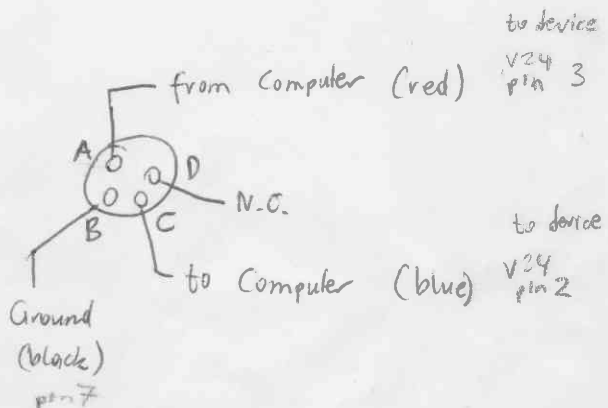 to device
from Computer (red) V24 pin 3
A
D
N.C.
B
C
to device
to Computer (blue) V24 pin 2
Ground
(black)
pin 7